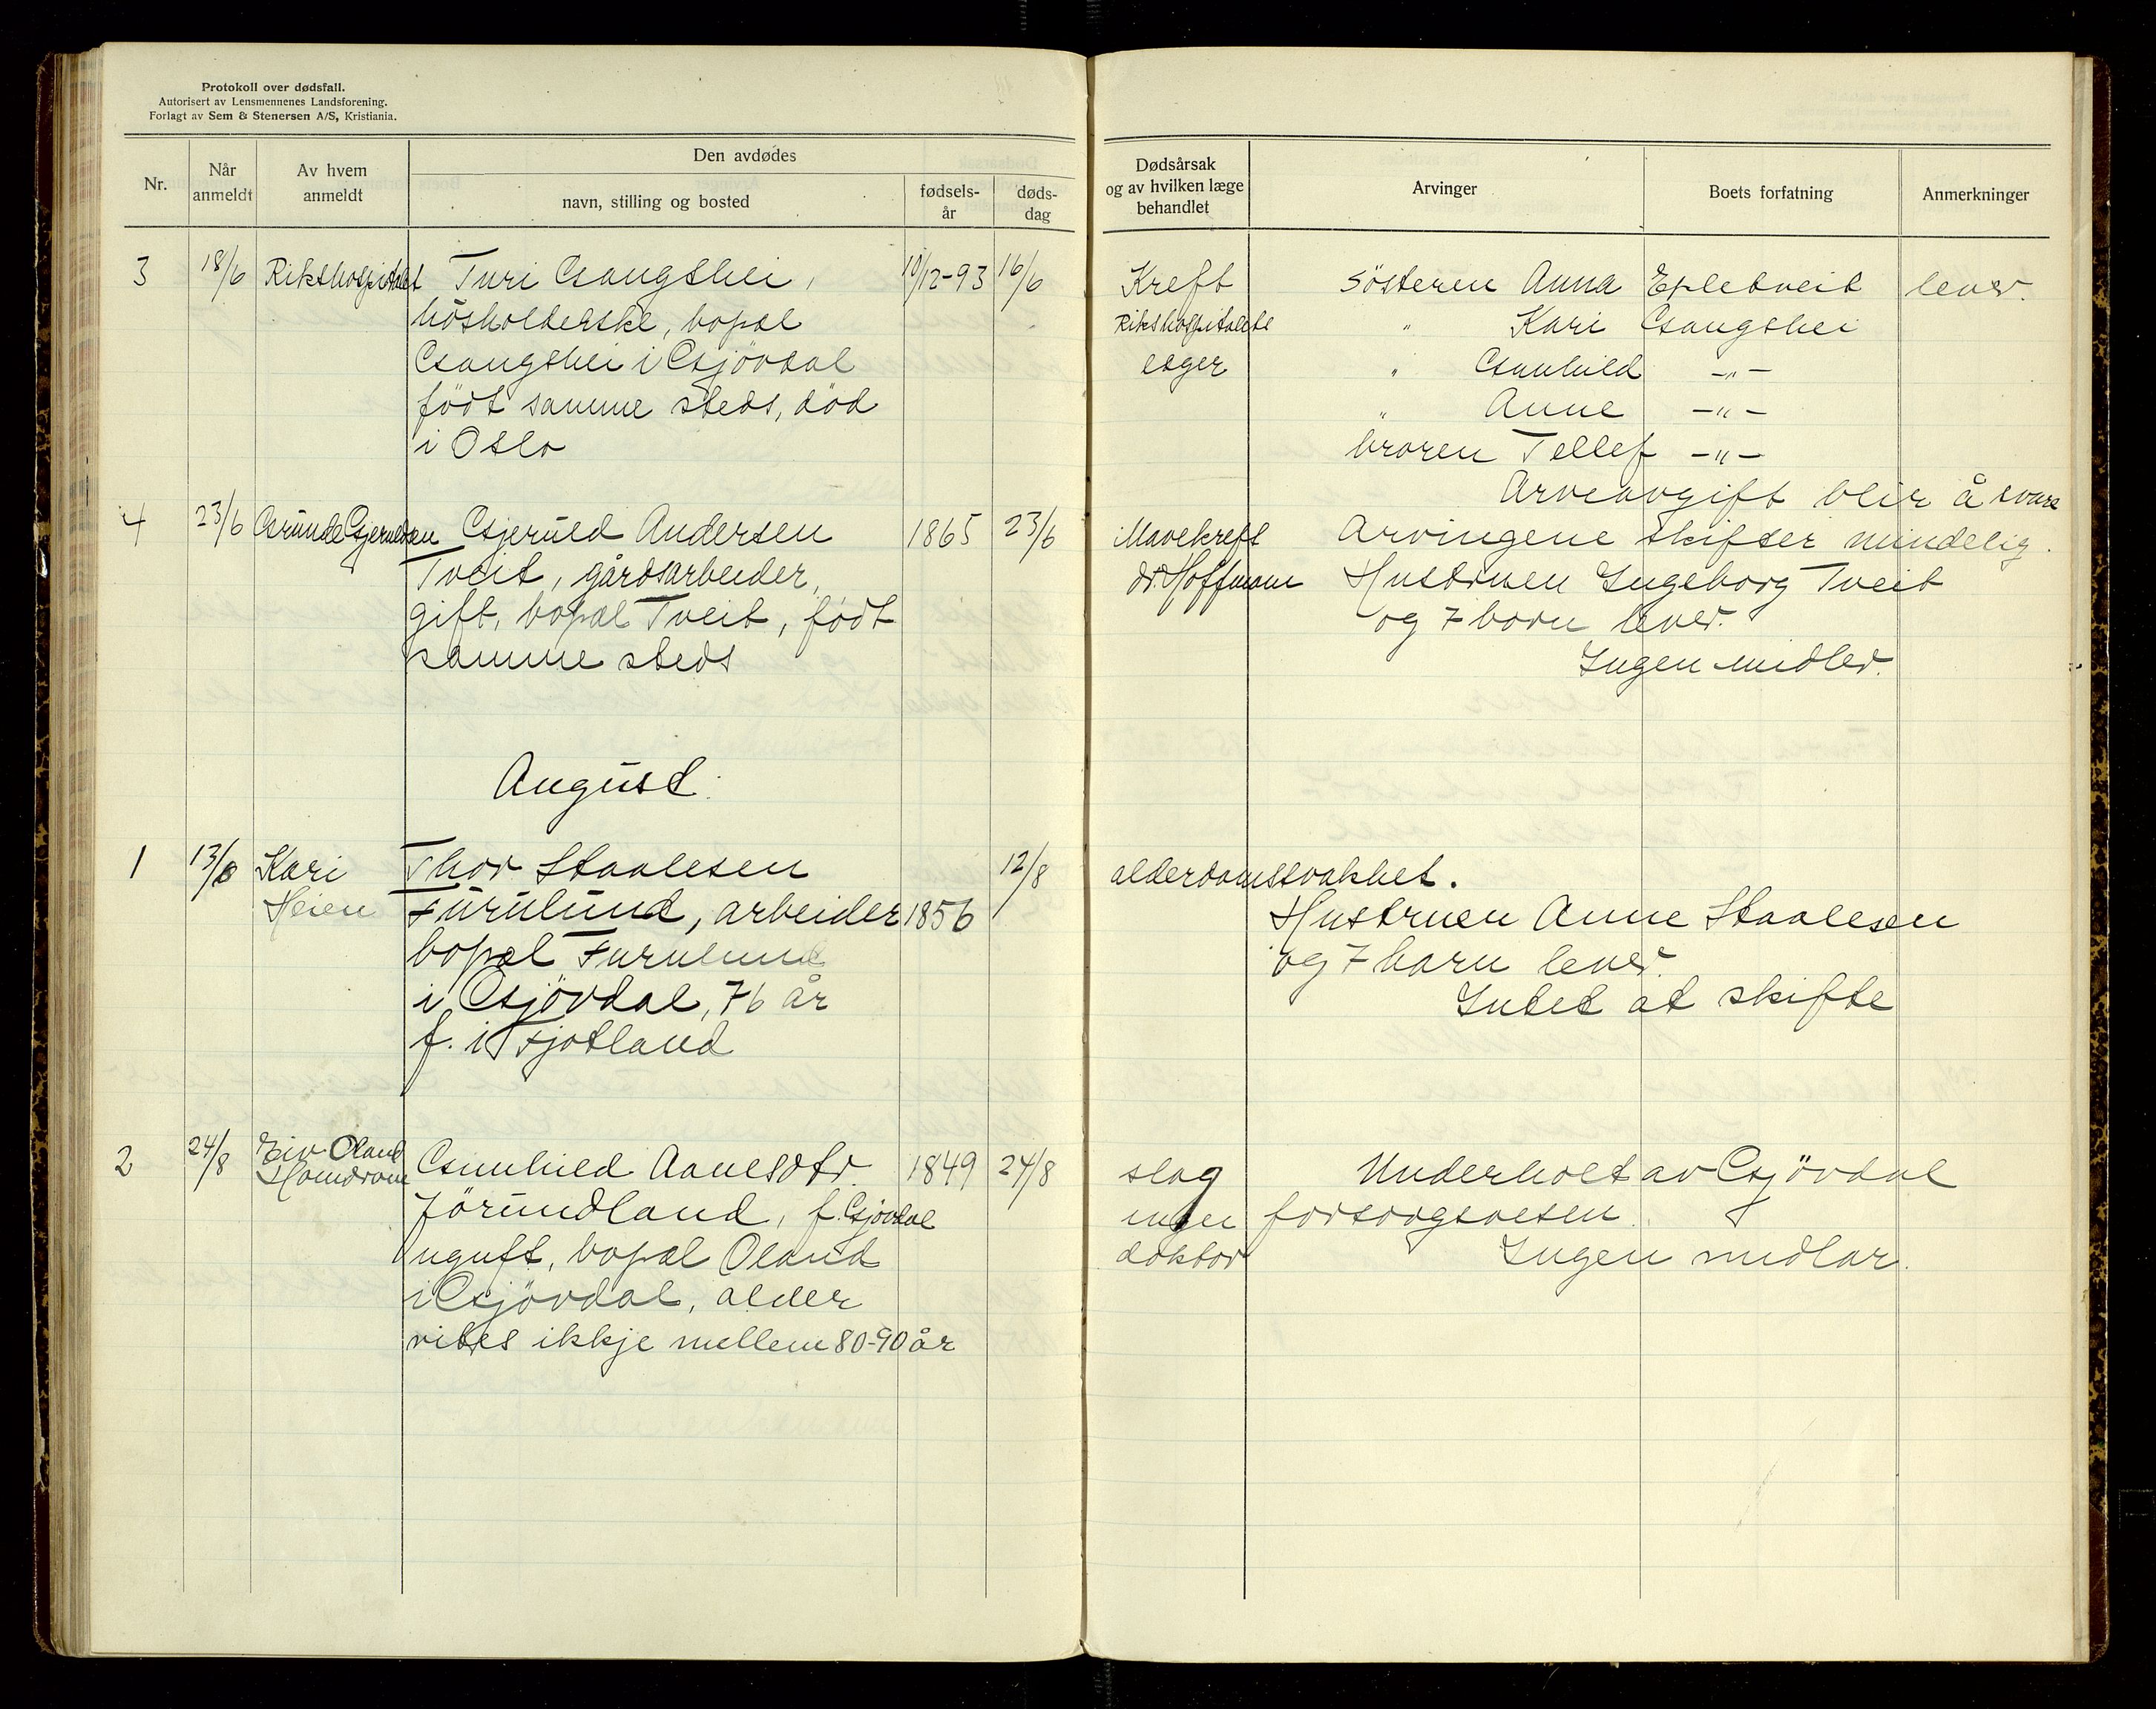 Protokoll over dødsfall.
Autorisert av Lensmennenes Landsforening.
Forlagt av Sem & Stenersen A/S, Kristiania.
Nr.
Når anmeldt
Av hvem anmeldt
Den avdødes
navn, stilling og bosted
fødsels-år
døds-dag
Dødsårsak og av hvilken læge behandlet
Arvinger
Boets forfatning
Anmerkninger
3 18/6 Rikshospitalet Turi Gaugshei, 10/12-93 16/6 Kreft Søsteren Anna Epletveit lever.
hösholderske, bopæl Rikshospitalets " Kari Gaugshei
Gaugshei i Gjövdal læger " Gunhild -"-
födt samme steds, död " Anne -"-
i Oslo broren Tellef -"-
Arveavgift blir å svare
4 23/6 Grunde Gjeruldsen Gjeruld Andersen 1865 23/6 Mavekreft Arvingene skifter mindelig.
Tveit, gårdsarbeider, dr. Hoffmann Hustruen Ingeborg Tveit
gift, bopæl Tveit, födt og 7 born lever.
samme steds Ingen midler.
August.
1 13/8 Kari Thor Staalesen 12/8 alderdomssvakhet.
Heien Furulund, arbeider 1856 Hustruen Anne Staalesen
bopæl Furulund og 7 barn lever.
i Gjövdal, 76 år Intet at skifte
f. i Fjotland
2 24/8 Eiv Oland Gunhild Aanesdtr. 1849 24/8 slag Underholt av Gjövdal
Hamdram Jörundland, f. Gjövdal ingen forsorgsvesen.
uguft, bopæl Oland doktor Ingen midlar.
i Gjövdal, alder
vites ikkje mellem 80-90 år